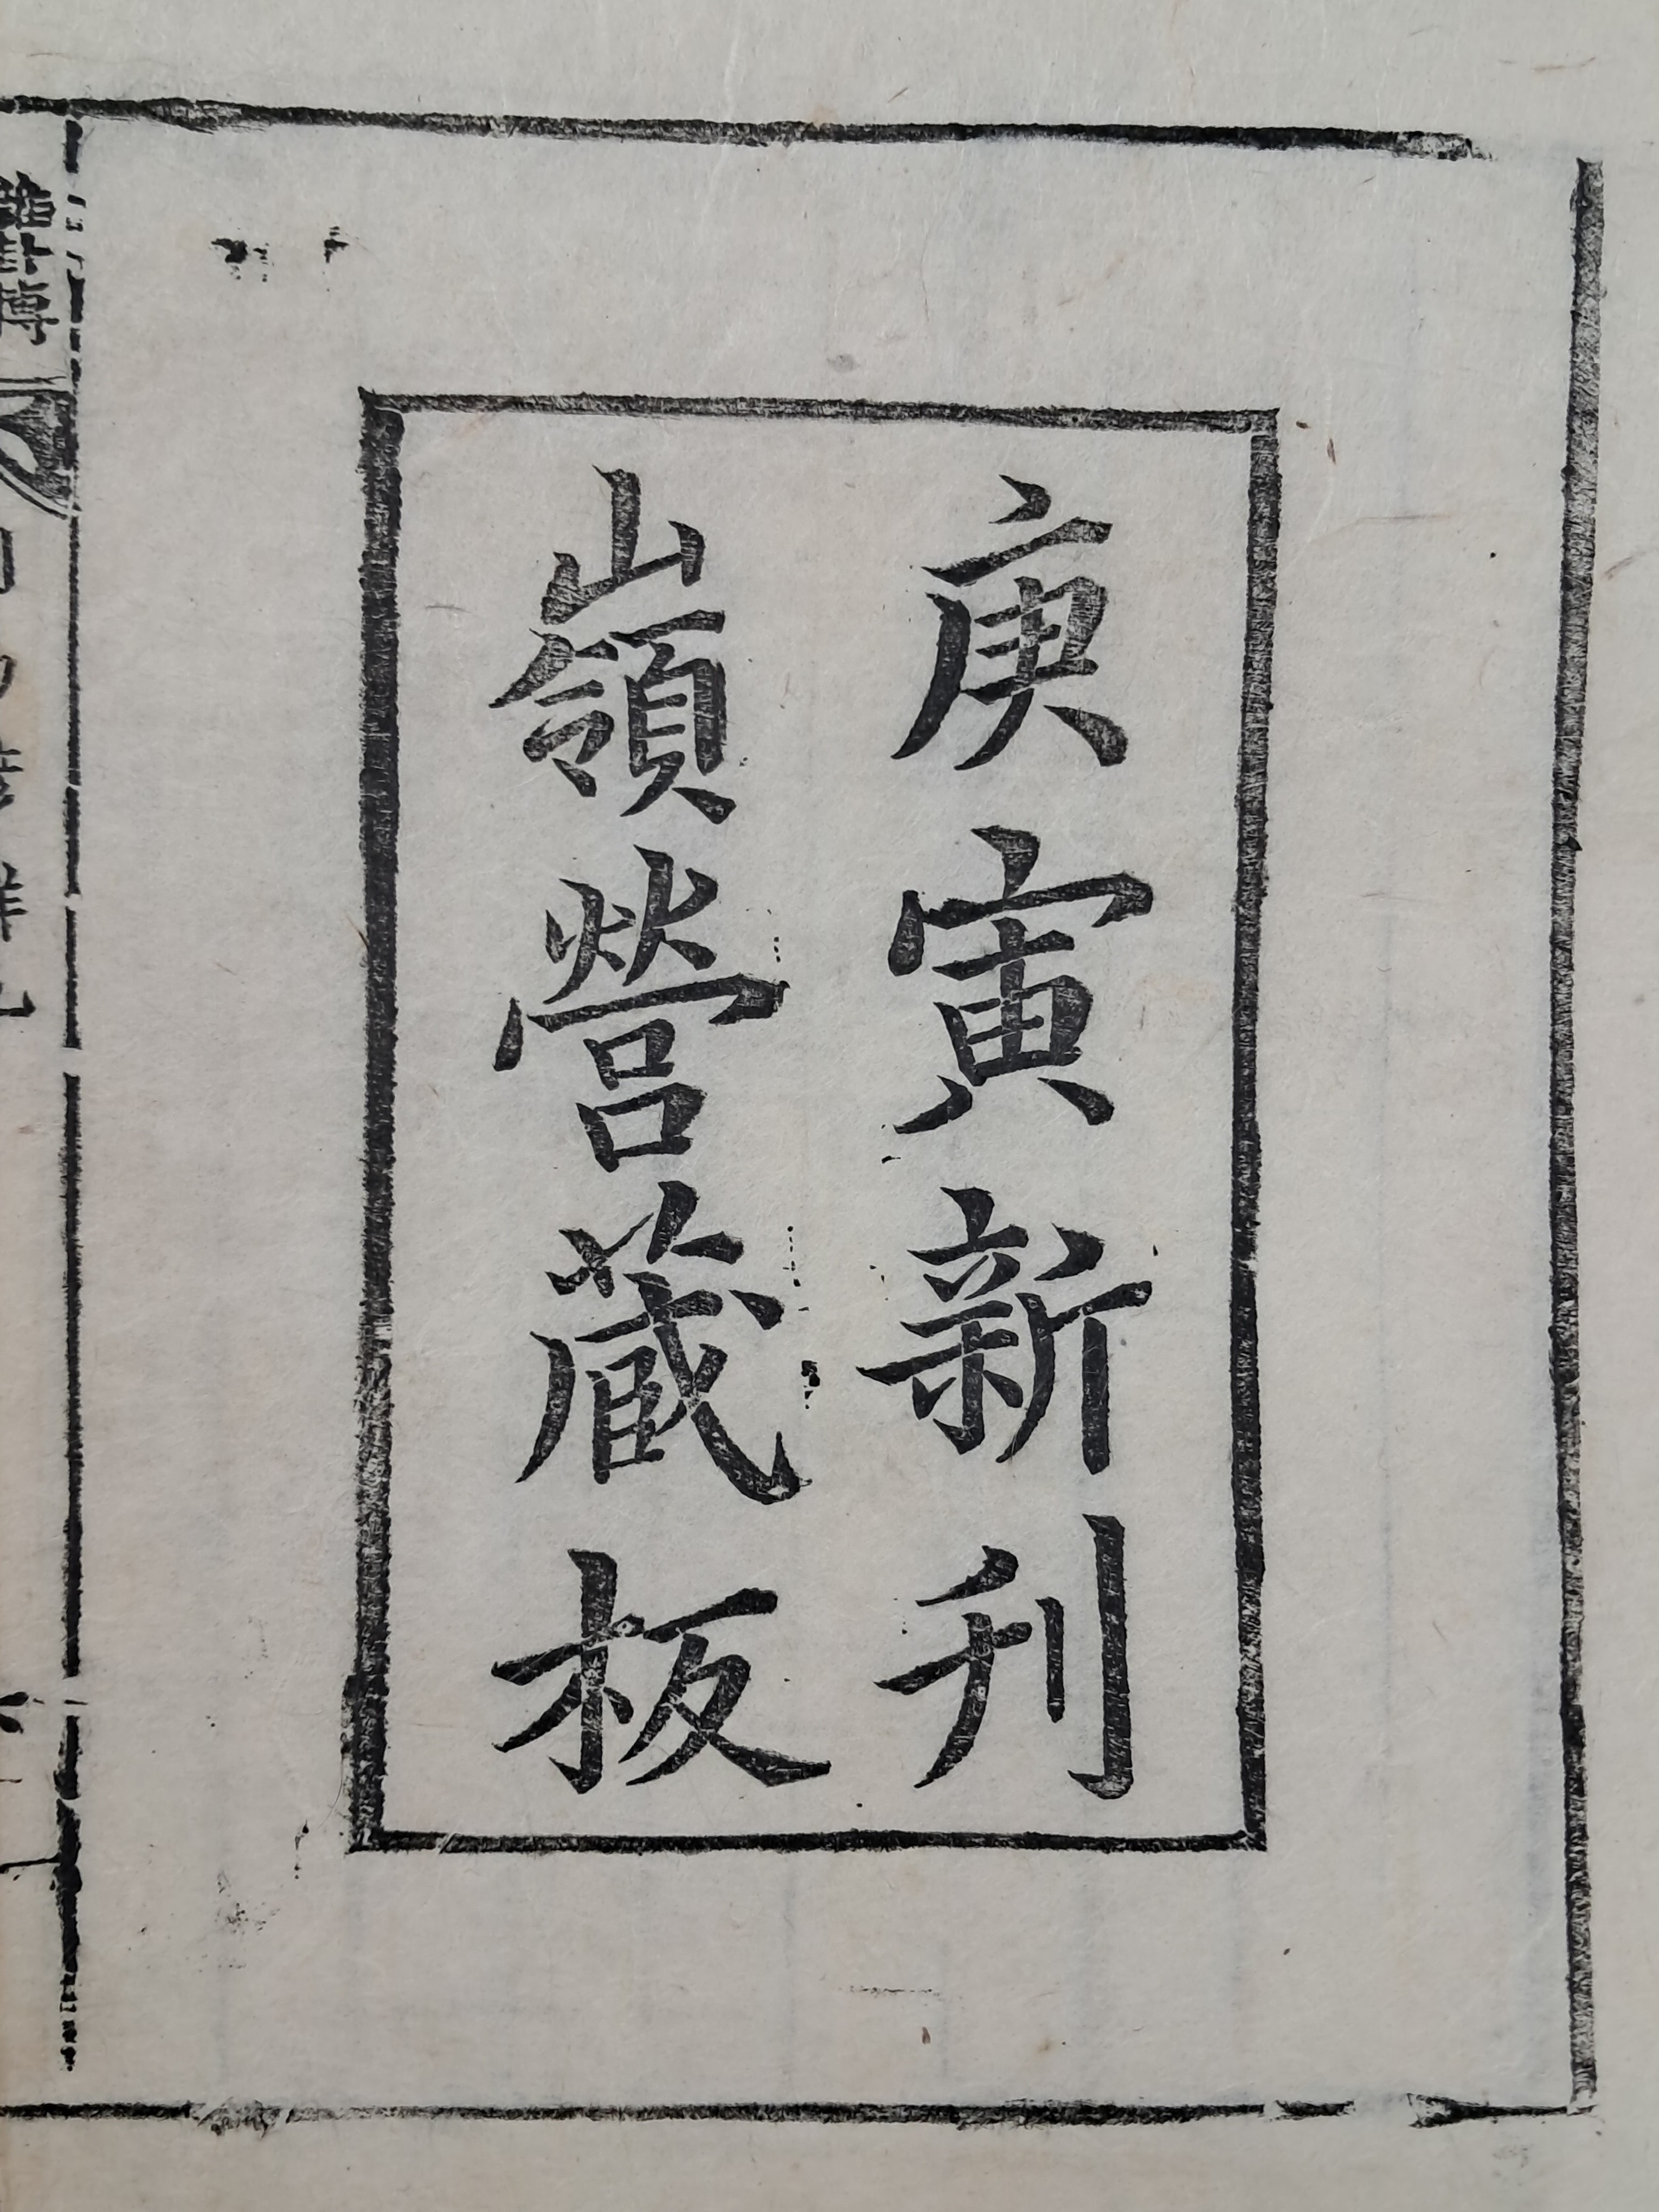 庚寅新刊
嶺營藏板